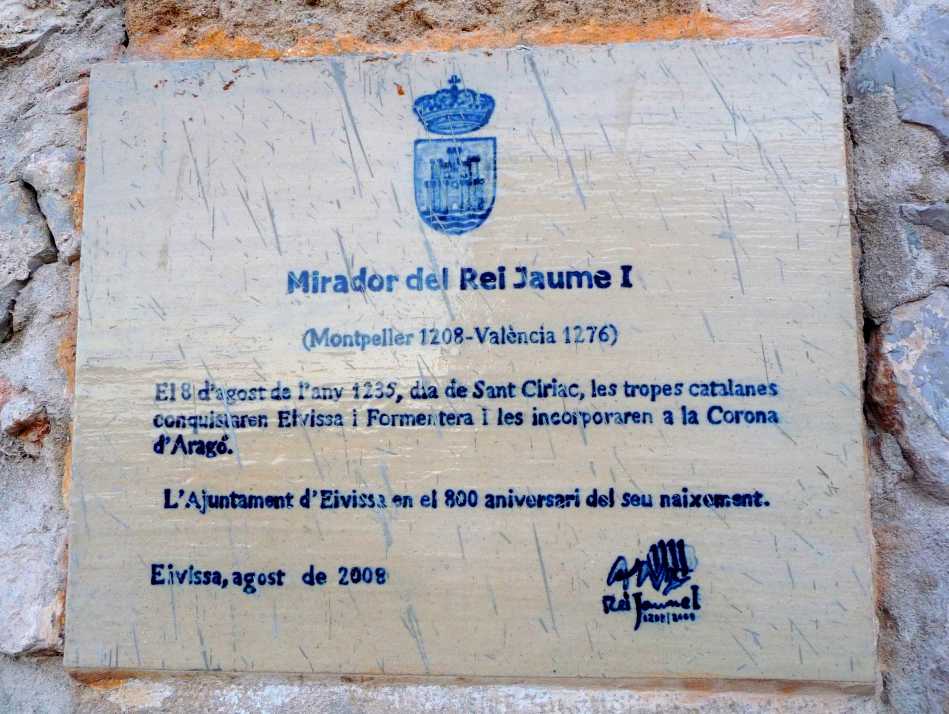 Mirador del Rei Jaume I
(Montpeller 1208-València 1276)
El 8 d'agost de l'any 1235, dia de Sant Ciriac, les tropes catalanes
conquistaren Eivissa i Formentera i les incorporaren a la Corona
d'Aragó.
L'Ajuntament d'Eivissa en el 800 aniversari del seu naixement.
Eivissa, agost de 2008
Rei Jaume I
1208/2008